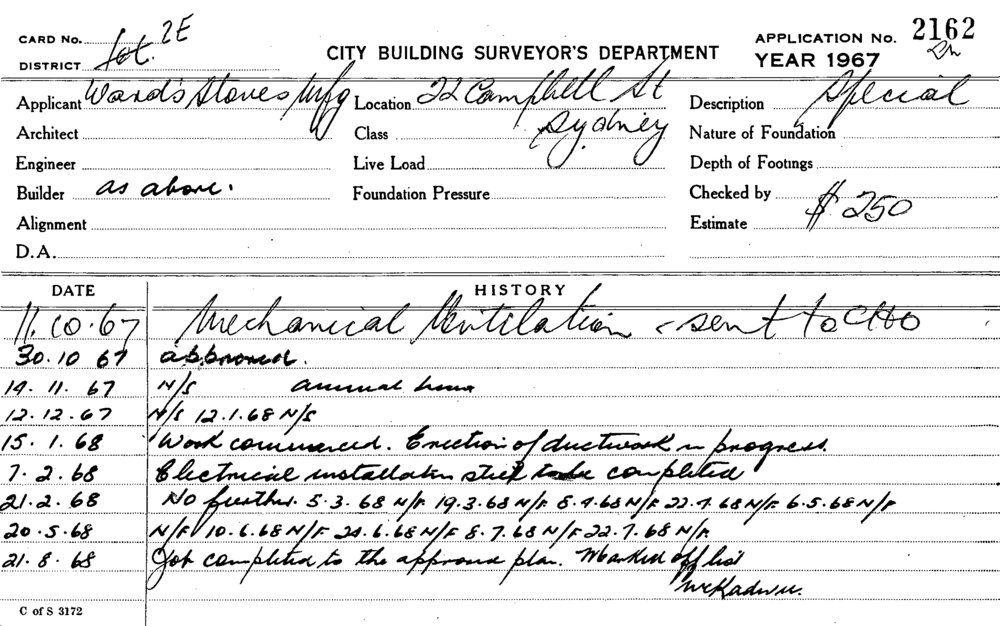 CARD No. 2E
APPLICATION No. 2162
DISTRICT
CITY BUILDING SURVEYOR'S DEPARTMENT
YEAR 1967
Applicant Ward's Stoves Mfg Location 22 Campbell St Description Special
Architect Class Sydney Nature of Foundation
Engineer Live Load Depth of Footings
Builder as above. Foundation Pressure Checked by
Alignment Estimate $250
D.A.
DATE HISTORY
11.10.67 Mechanical Ventilation - sent to CHO
30.10 67 approved.
14.11.67 N/S annual
12.12.67 N/S 12.1.68 N/S
15.1.68 Work commenced. Erection of ductwork in progress.
7.2.68 Electrical installation still to be completed
21.2.68 No further. 5.3.68 N/F 19.3.68 N/F 8.4.68 N/F 22.4.68 N/F 6.5.68 N/F
20.5.68 N/F 10.6.68 N/F 24.6.68 N/F 8.7.68 N/F 22.7.68 N/F
21.8.68 Job completed to the approved plan. Marked off list
C of S 3172